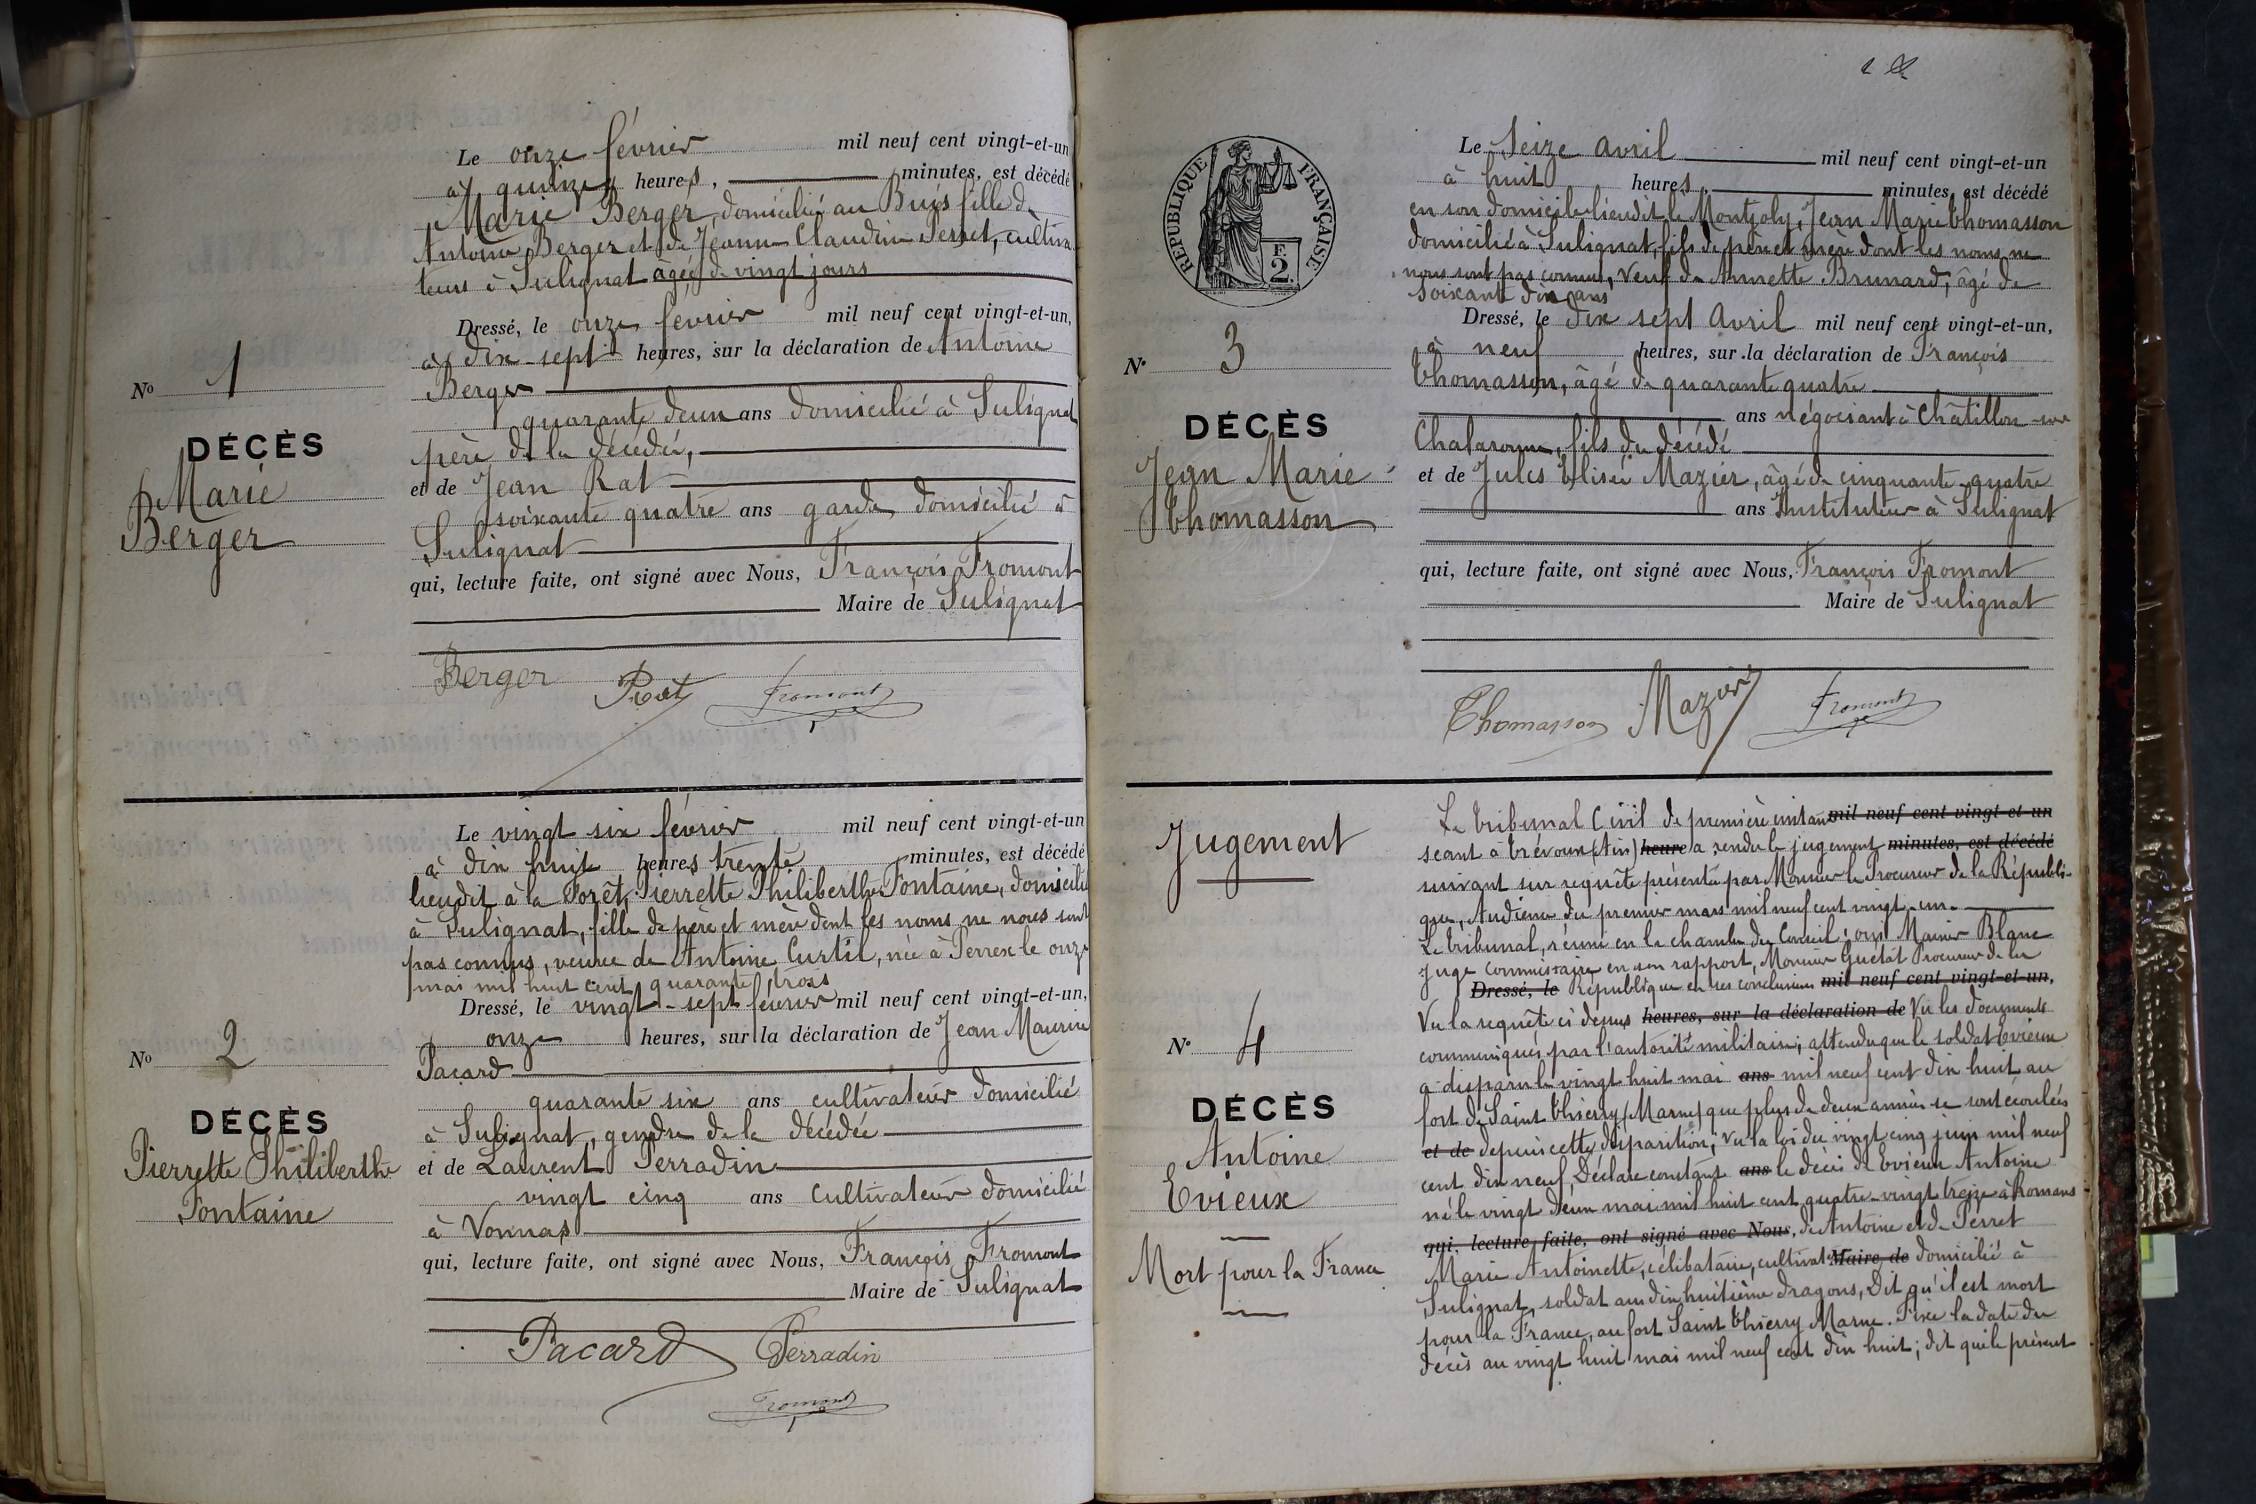 Le onze février mil neuf cent vingt-et-un
à quinze heures, minutes, est décédé
Marie Berger, domiciliée au Buis fille de
Antoine Berger et de Jeanne Claudine Perret, cultiva
teurs à Sulignat âgée de vingt jours
Dressé, le onze février mil neuf cent vingt-et-un,
à dix-sept heures, sur la déclaration de Antoine
Berger
quarante deux ans domicilié à Sulignat
père de la décédée,
et de Jean Rat
soixante quatre ans garde domicilié à
Sulignat
qui, lecture faite, ont signé avec Nous, François Fromont
Maire de Sulignat
Berger Rat Fromont
No 1
DÉCÈS
Marie
Berger
Le vingt six février mil neuf cent vingt-et-un
à dix huit heures trente minutes, est décédé
lieudit à la Forêt, Pierrette Philiberthe Fontaine, domiciliée
à Sulignat, fille de père et mère dont les noms ne nous sont
pas connus, veuve de Antoine Curtil, née à Perrex le onze
mai mil huit cent quarante trois
Dressé, le vingt-sept février mil neuf cent vingt-et-un,
onze heures, sur la déclaration de Jean Maurice
Pacard
quarante six ans cultivateur domicilié
à Sulignat, gendre de la décédée
et de Laurent Perradin
vingt cinq ans cultivateur domicilié
à Vonnas
qui, lecture faite, ont signé avec Nous, François Fromont
Maire de Sulignat
Pacard Perradin
Fromont
No 2
DÉCÈS
Pierrette Philiberthe
Fontaine
RÉPUBLIQUE FRANÇAISE
F.
2.
Le Seize avril mil neuf cent vingt-et-un
à huit heures, minutes, est décédé
en son domicile lieudit le Montjoly, Jean Marie Thomasson
domicilié à Sulignat, fils de père et mère dont les noms ne
nous sont pas connus, Veuf de Annette Brunard, âgé de
soixante dix ans
Dressé, le dix sept avril mil neuf cent vingt-et-un,
à neuf heures, sur la déclaration de François
Thomasson, âgé de quarante quatre
ans négociant à Châtillon-sur
Chalaronne, fils du décédé
et de Jules Elisée Mazier, âgé de cinquante-quatre
ans Instituteur à Sulignat
qui, lecture faite, ont signé avec Nous, François Fromont
Maire de Sulignat
Thomasson Mazier Fromont
No 3
DÉCÈS
Jean Marie
Thomasson
Le tribunal Civil de première instance mil neuf cent vingt-et-un
séant à Trévoux (Ain) heure a rendu le jugement minutes, est décédé
suivant sur requête présentée par Monsieur le Procureur de la Républi-
que, Audience du premier mars mil neuf cent vingt-un.
Le tribunal, réuni en la chambre du Conseil; ouï Monsieur Blanc
Juge commissaire en son rapport, Monsieur Guétat Procureur de la
Dressé, le République en ses conclusions mil neuf cent vingt-et-un,
Vu la requête ci dessus heures, sur la déclaration de Vu les documents
communiqués par l'autorité militaire; attendu que le soldat Evieux
a disparu le vingt huit mai ans mil neuf cent dix huit au
fort de Saint Thierry (Marne) que plus de deux années se sont écoulées
et de depuis cette disparition; Vu la loi du vingt cinq juin mil neuf
cent dix neuf Déclare constant ans le décès de Evieux Antoine
né le vingt deux mai mil huit cent quatre-vingt treize à Romans
qui, lecture faite, ont signé avec Nous, de Antoine et de Perret
Marie Antoinette, célibataire, cultivat Maire de domicilié à
Sulignat, soldat au dix huitième dragons, Dit qu'il est mort
pour la France, au fort Saint Thierry Marne. Fixe la date du
décès au vingt huit mai mil neuf cent dix huit; dit que le présent
Jugement
No 4
DÉCÈS
Antoine
Evieux
Mort pour la France